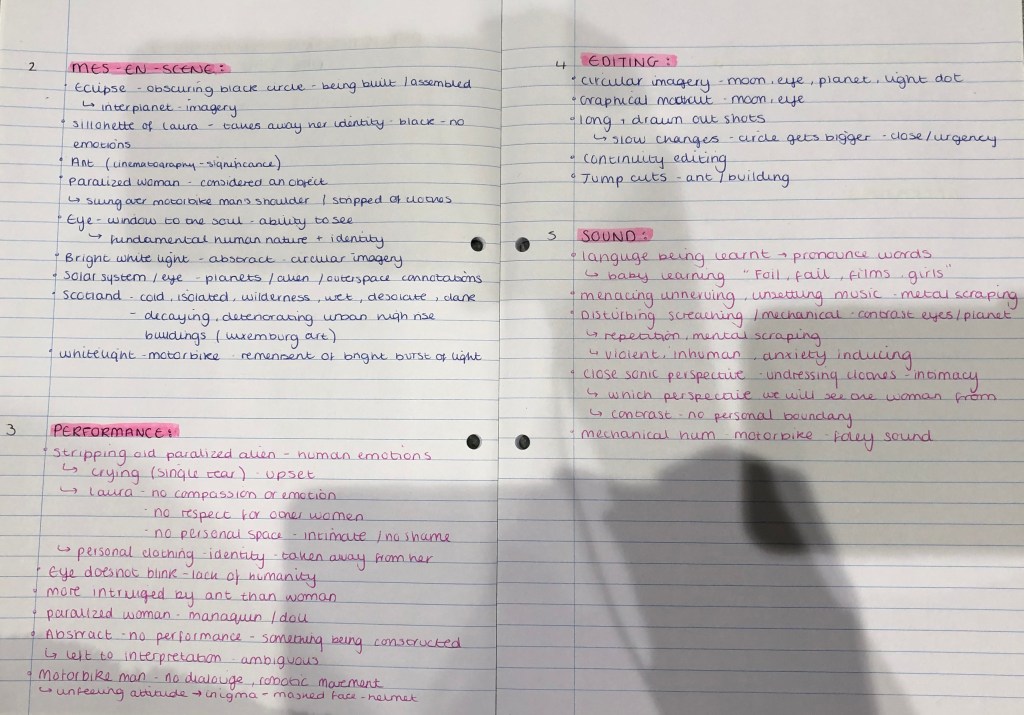 2 MES-EN-SCENE:
• Eclipse - obscuring black circle - being built / assembled
↳ interplanet - imagery
• sillohette of Laura - takes away her identity - black - no
emotions
• Ant (cinematography - significance)
• paralized woman - considered an object
↳ swung over motorbike mans shoulder / stripped of clothes
• Eye - window to the soul - ability to see
↳ fundamental human nature + identity
• Bright white light - abstract - circular imagery
• Solar system / eye - planets / alien / outerspace connotations
• Scotland - cold, isolated, wilderness, wet, desolate,
- decaying, deteriorating urban high rise
buildings ( luxemburg art)
• white light - motorbike - remenisent of bright burst of light
3 PERFORMANCE:
• Stripping old paralized alien - human emotions
↳ crying (single tear) - upset
↳ Laura - no compassion or emotion
- no respect for other women
- no personal space - intimate / no shame
↳ personal clothing - identity - taken away from her
• Eye does not blink - lack of humanity
• more intruiged by ant than woman
• paralized woman - managuin / doll
• Abstract - no performance - something being constructed
↳ left to interpretation - ambiguous
• Motorbike man - no dialouge, robotic movement
↳ unfeeling attitude → enigma - masked face - helmet
4 EDITING:
• Circular imagery - moon, eye, planet, light dot
• Graphical matchcut - moon, eye
• long + drawn out shots
↳ slow changes - circle gets bigger - close / urgency
• continuity editing
• Jump cuts - ant / building
5 SOUND:
• languge being learnt → pronounce words
↳ baby learning "Foil, fail, films, girls"
• menacing unnerving, unsettling music - metal scraping
• Disturbing screaching / mechanical - contrast eyes/planet
↳ repetation, mental scraping
↳ violent, inhuman, anxiety inducing
• close sonic perspective - undressing clothes - intimacy
↳ which perspective we will see the woman from
↳ contrast - no personal boundary
• mechanical hum - motorbike - foley sound